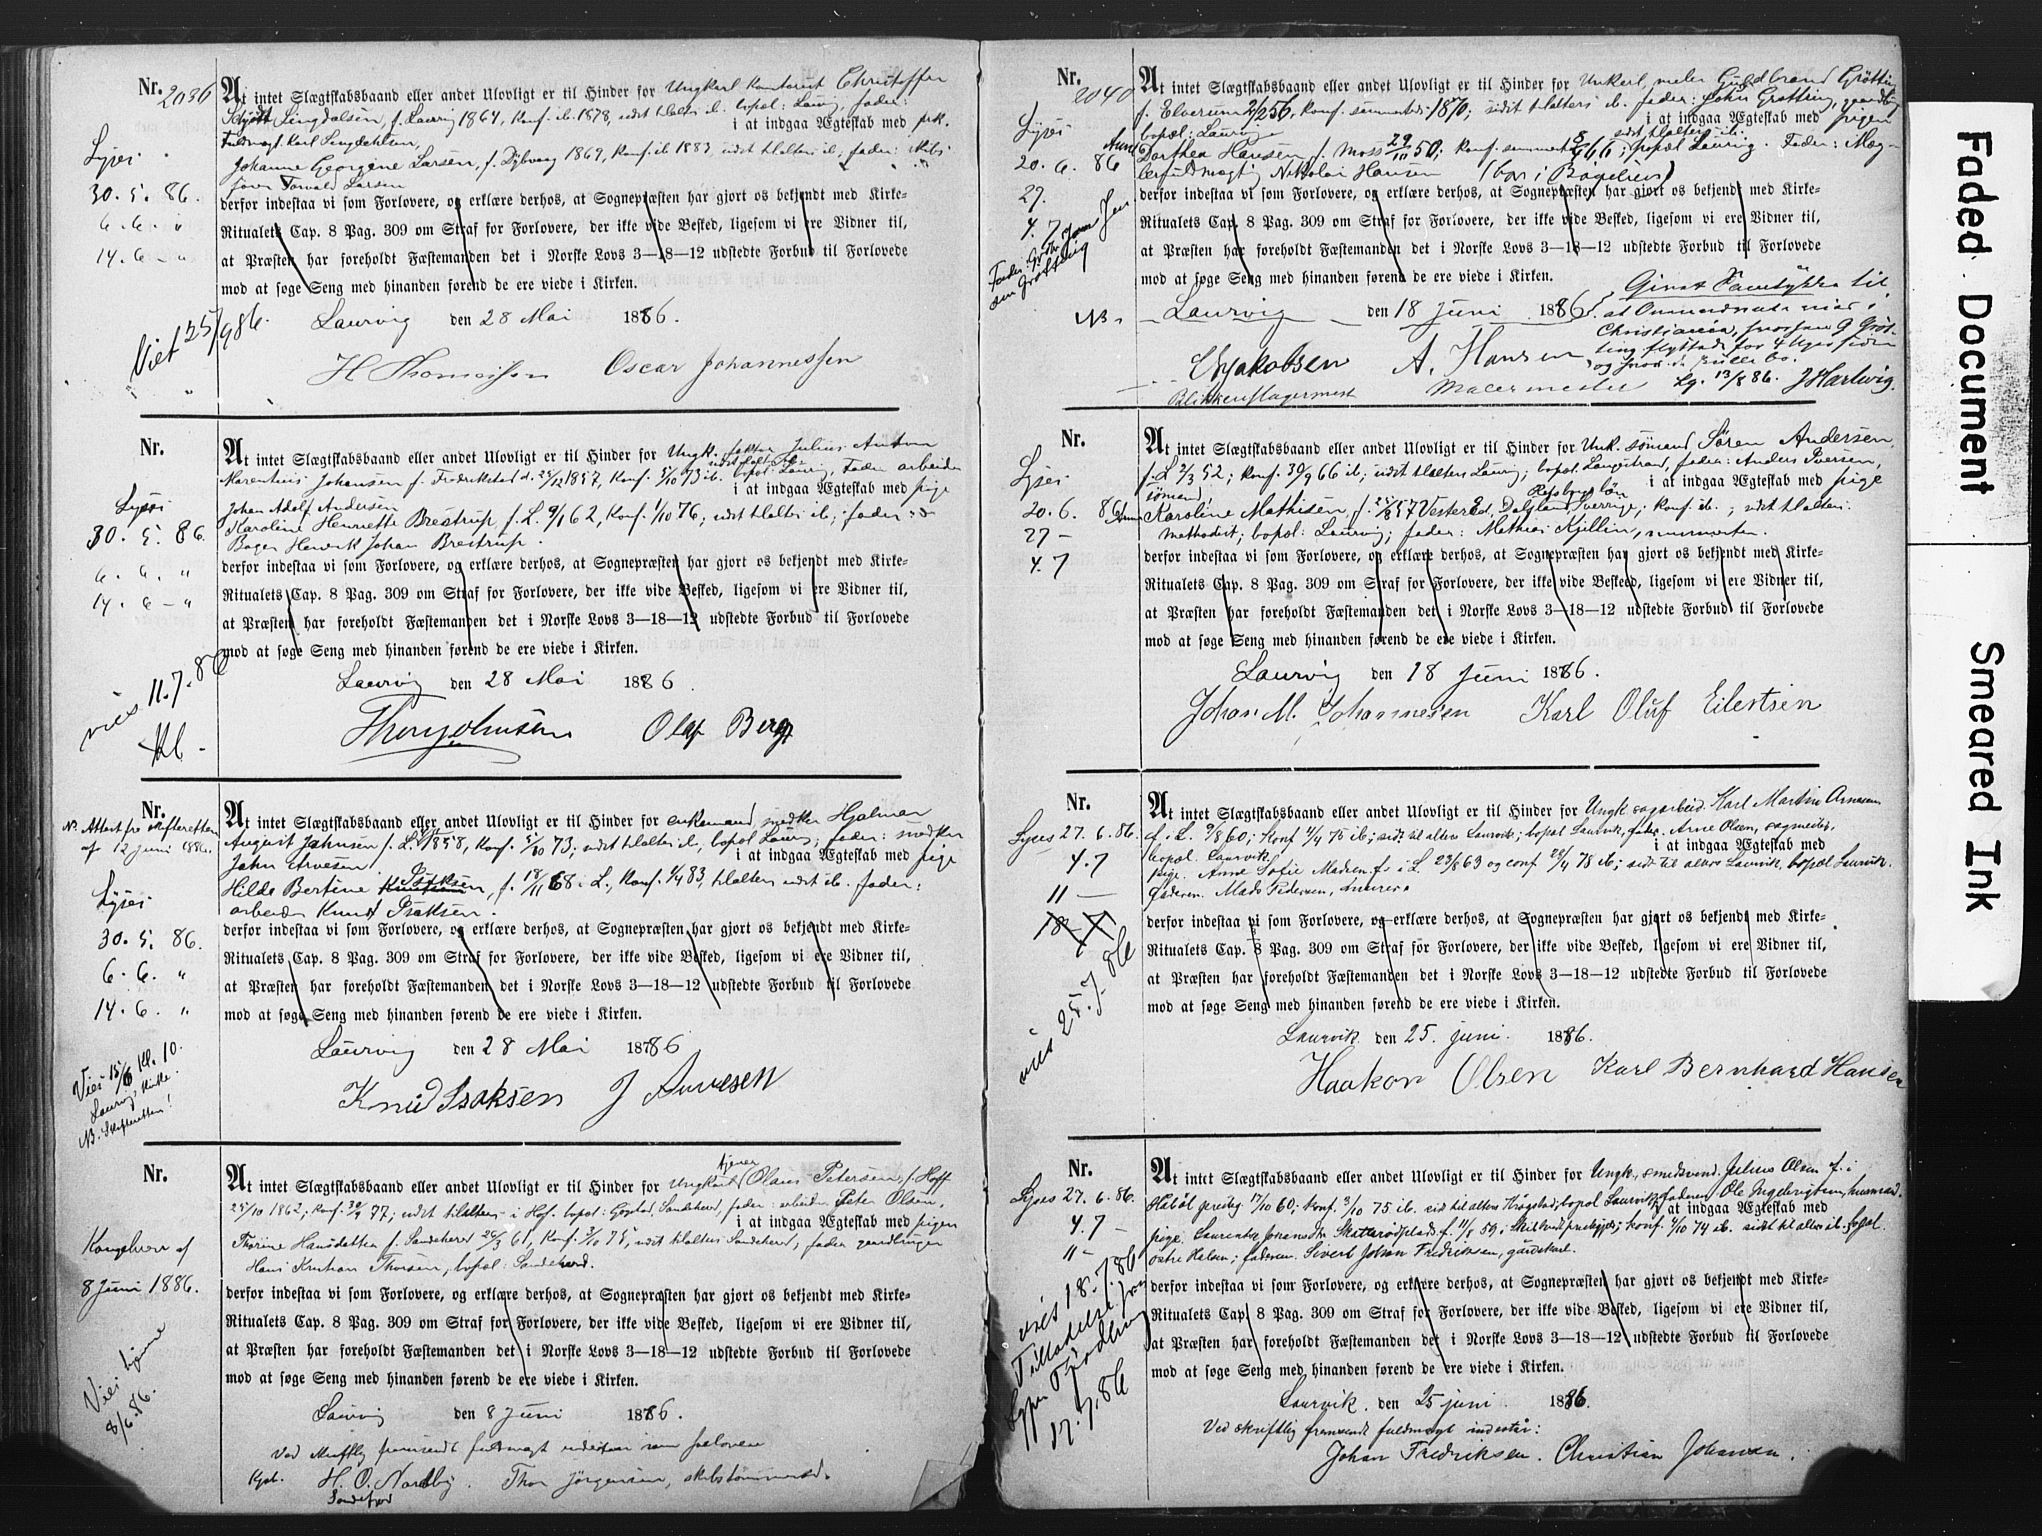 Nr. 2036
At intet Slægtskabsbaand eller andet Ulovligt er til Hinder for Ungkarl kontorist Christoffer
f. Laurvig 1864, Konf. ib. 1878, sidst til alters ib. bopæl: Laurvig, fader:
Fuldmægt. Karl i at indgaa Ægteskab med pik.
Johanne Georgine Larsen, f. Dybvaag 1869, Konf. ib 1883, sidst til alters ib, fader: skibs
fører Torvald Larsen
derfor indestaa vi som Forlovere, og erklære derhos, at Sognepræsten har gjort os bekjendt med Kirke-
Ritualets Cap. 8 Pag. 309 om Straf for Forlovere, der ikke vide Besked, ligesom vi ere Vidner til,
at Præsten har foreholdt Fæstemanden det i Norske Lovs 3—18—12 udstedte Forbud til Forlovede
mod at søge Seng med hinanden førend de ere viede i Kirken.
Laurvig den 28 Mai 1886.
H Thomassen Oscar Johannessen
Lyses
30. 5. 86.
6. 6. "
14. 6 - "
Viet 25/9 86.
Nr.
At intet Slægtskabsbaand eller andet Ulovligt er til Hinder for Ungk. Julius Anton
Marentius Johansen f. Fredrikstad d. 25/12 1857, Konf. 5/10 73 ib. bopæl: Laurvig, Fader arbeider
Johan Adolf Andersen i at indgaa Ægteskab med pige
Karoline Henriette Brestrup, f. L. 9/1 62, Konf. 1/10 76; sidst til alters ib; fader:
Bager Henrik Johan Brestrup.
derfor indestaa vi som Forlovere, og erklære derhos, at Sognepræsten har gjort os bekjendt med Kirke-
Ritualets Cap. 8 Pag. 309 om Straf for Forlovere, der ikke vide Besked, ligesom vi ere Vidner til,
at Præsten har foreholdt Fæstemanden det i Norske Lovs 3—18—12 udstedte Forbud til Forlovede
mod at søge Seng med hinanden førend de ere viede i Kirken.
Laurvig den 28 Mai 1886.
Thor Johnsen Olaf Berg
Lyses
30. 5. 86.
6. 6. "
14. 6 - "
vies 11.7.86
Nr.
At intet Slægtskabsbaand eller andet Ulovligt er til Hinder for enkemand, snedker Hjalmar
August Jahnsen f. L. 1858, Konf. 5/10 73, sidst til alters ib, bopæl Laurvig, fader: snedker
John Arvesen, i at indgaa Ægteskab med pige
Hilda Bertine Isaksen, f. 18/11 68 i L, Konf. 1/4 83, til alters sidst ib. fader:
arbeider Knud Isaksen.
derfor indestaa vi som Forlovere, og erklære derhos, at Sognepræsten har gjort os bekjendt med Kirke-
Ritualets Cap. 8 Pag. 309 om Straf for Forlovere, der ikke vide Besked, ligesom vi ere Vidner til,
at Præsten har foreholdt Fæstemanden det i Norske Lovs 3—18—12 udstedte Forbud til Forlovede
mod at søge Seng med hinanden førend de ere viede i Kirken.
Laurvig den 28 Mai 1886
Knud Isaksen J Arvesen
N. Attest fra skifteretten
af 12 juni 1886.
Lyses
30. 5. 86.
6. 6. "
14. 6. "
Vies 15/6 Kl. 10.
Laurvig Kirke.
NB. Skifteretten!
Nr.
At intet Slægtskabsbaand eller andet Ulovligt er til Hinder for Ungkarl tjener Olaus Petersen, f. Hoff
25/10 1862, Konf. 30/9 77; sidst til alters i Hof. bopæl: Sandeherd, fader: arbeider Peter Olsen,
i at indgaa Ægteskab med pigen
Thorine Hansdatter f. Sandeherd 26/3 61, Konf. 3/10 75, sidst til alters Sandeherd, fader gaardbruger
Hans Kristian Thorsen, bopæl: Sandeherd.
derfor indestaa vi som Forlovere, og erklære derhos, at Sognepræsten har gjort os bekjendt med Kirke-
Ritualets Cap. 8 Pag. 309 om Straf for Forlovere, der ikke vide Besked, ligesom vi ere Vidner til,
at Præsten har foreholdt Fæstemanden det i Norske Lovs 3—18—12 udstedte Forbud til Forlovede
mod at søge Seng med hinanden førend de ere viede i Kirken.
Laurvig den 8 Juni 1886.
Ved skriftlig fremsendt fuldmagt indestaar som forlovere
Kapt. H. O. Nordby. Thor Jørgensen, skibstømmermd.
Sandefjord
Kongebrev af
8 Juni 1886.
Vies hjemme
8/6 86.
Nr. 2040
At intet Slægtskabsbaand eller andet Ulovligt er til Hinder for Unkarl, maler Guldbrand Grøtting
f. Elverum 2/2 56, Konf. sammested 1870; sidst til alters ib. fader: John Grøtting, gaardbr
bopæl: Laurvig i at indgaa Ægteskab med pigen
Dorthea Hansen f. Moss 29/11 50; Konf. sammest 66; sidst til alters ib. bopæl Laurvig. Fader: Mæg-
lerfuldmægtig Nikolai Hansen (bor i Bagelven)
derfor indestaa vi som Forlovere, og erklære derhos, at Sognepræsten har gjort os bekjendt med Kirke-
Ritualets Cap. 8 Pag. 309 om Straf for Forlovere, der ikke vide Besked, ligesom vi ere Vidner til,
at Præsten har foreholdt Fæstemanden det i Norske Lovs 3—18—12 udstedte Forbud til Forlovede
mod at søge Seng med hinanden førend de ere viede i Kirken.
Laurvig den 18 Juni 1886
Givet Samtykke til
Christiania, hvorhen G Grøt-
ting flyttede for 4 Uger siden
og hvor de ville bo.
Lg. 13/8 86. J Hartvig.
Jakobsen A. Hansen
Blikkenslagermest Malermester
Lyses
20. 6. 86
27.
4. 7
NB.
Nr.
At intet Slægtskabsbaand eller andet Ulovligt er til Hinder for Unk. sømand Søren Andersen
f. L 2/3 52; Konf. 30/9 66 ib; sidst til alters Laurvig; bopæl Langestrand, fader: Anders Iversen,
sømand, i at indgaa Ægteskab med pige
Karoline Mathisen, f. 25/8 57 Vestere Dalsland Sverrige; Konf. ib.; sidst til alters.
methodist; bopæl: Laurvig; fader: Mathias Kjellin, murmester.
derfor indestaa vi som Forlovere, og erklære derhos, at Sognepræsten har gjort os bekjendt med Kirke-
Ritualets Cap. 8 Pag. 309 om Straf for Forlovere, der ikke vide Besked, ligesom vi ere Vidner til,
at Præsten har foreholdt Fæstemanden det i Norske Lovs 3—18—12 udstedte Forbud til Forlovede
mod at søge Seng med hinanden førend de ere viede i Kirken.
Laurvig den 18 Juni 1886.
Johan M. Johannesen Karl Oluf Eilertsen
Lyses
20. 6. 86
27 -
4. 7
Nr.
At intet Slægtskabsbaand eller andet Ulovligt er til Hinder for Ungk. sagarbeid. Karl Martin Arnesen
f. i L. 9/8 60; Konf 4/4 75 ib; sidst til alters Laurvik; bopæl Laurvik, fader. Arne Olsen, sagmester,
bopæl. Laurvik. i at indgaa Ægteskab med
pige. Anne Sofie Madsen f. i L 23/8 63 og conf 28/4 78 ib; sidst til alters Laurvik, bopæl Laurvik.
faderen. Mads Pedersen, murer.
derfor indestaa vi som Forlovere, og erklære derhos, at Sognepræsten har gjort os bekjendt med Kirke-
Ritualets Cap. 8 Pag. 309 om Straf for Forlovere, der ikke vide Besked, ligesom vi ere Vidner til,
at Præsten har foreholdt Fæstemanden det i Norske Lovs 3—18—12 udstedte Forbud til Forlovede
mod at søge Seng med hinanden førend de ere viede i Kirken.
Laurvik den 25. juni 1886.
Haakon Olsen Karl Bernhard Hansen
Lyses 27. 6. 86.
4. 7
11 —
vies 25. 7. 86
Nr.
At intet Slægtskabsbaand eller andet Ulovligt er til Hinder for Ungk., smedsvend. Julius Olsen f. i
Habøl præstg. 17/10 60; Konf. 3/10 75 ib. sidst til alters Krogstad; bopæl Laurvik; faderen Ole Ingebrigtsen, husmand.
i at indgaa Ægteskab med
pige. Laurentze Johansdtr. f. 11/1 59 i præstegj; konf. 4/10 74 ib. sidst til alters ib. bopæl.
østre Halsen; faderen. Sivert Johan Fredriksen, gårdskarl.
derfor indestaa vi som Forlovere, og erklære derhos, at Sognepræsten har gjort os bekjendt med Kirke-
Ritualets Cap. 8 Pag. 309 om Straf for Forlovere, der ikke vide Besked, ligesom vi ere Vidner til,
at Præsten har foreholdt Fæstemanden det i Norske Lovs 3—18—12 udstedte Forbud til Forlovede
mod at søge Seng med hinanden førend de ere viede i Kirken.
Laurvik. den 25 juni 1886.
Ved skriftlig fremsendt fuldmagt indestår:
Johan Fredriksen. Christian Johansen.
Lyses 27. 6. 86.
4. 7 —
11 —
vies 18. 7. 86
Tilladelse fra
17. 7. 86
Faded Document
Smeared Ink